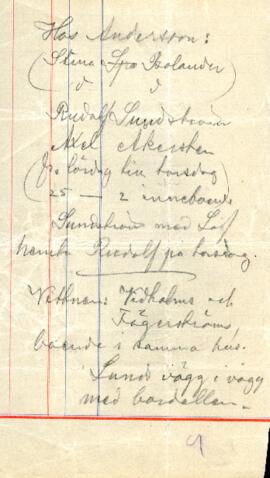 Hos Andersson:
(Stina Fro Bolander)
Rudolf Sundström
Axel Åkersten
fr. lördag till torsdag
(25 — 2 inneboende
Sundström med Löf
hemta Rudolf på torsdag.
Vittnen: Vidholms och
Fägerströms,
boende i samma hus.
Lunds vägg i vägg
med bordellen.